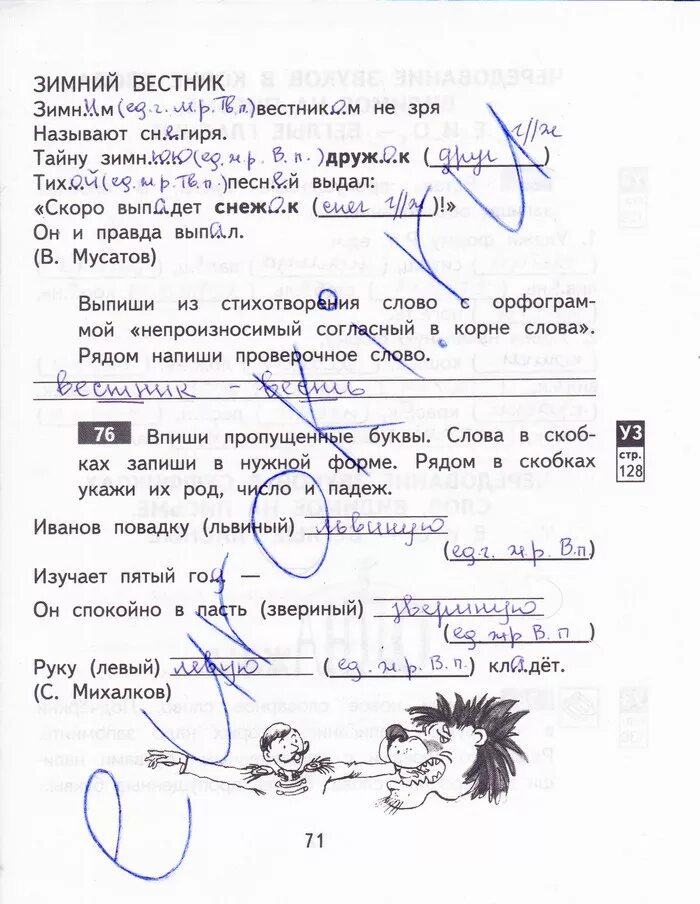 ЗИМНИЙ ВЕСТНИК
Зимн.и.м (ед.ч. м.р. Тв.п.) вестник.о.м не зря
Называют сн.е.гиря. г//ж
Тайну зимн.юю (ед. ж.р. В.п.) друж.о.к (друг)
Тих.ой (ед. ж.р. Тв.п.) песн.е.й выдал:
«Скоро вып.а.дет снеж.о.к (снег г//ж)!»
Он и правда вып.а.л.
(В. Мусатов)
Выпиши из стихотворения слово с орфограм-
мой «непроизносимый согласный в корне слова».
Рядом напиши проверочное слово.
вестник - весть
76 Впиши пропущенные буквы. Слова в скоб-
ках запиши в нужной форме. Рядом в скобках
укажи их род, число и падеж.
УЗ
стр.
128
Иванов повадку (львиный) львиную
(ед.ч. ж.р. В.п.)
Изучает пятый год —
Он спокойно в пасть (звериный) звериную
(ед ж.р В. п)
Руку (левый) левую (ед. ж.р. В.п.) кла.дёт.
(С. Михалков)
71